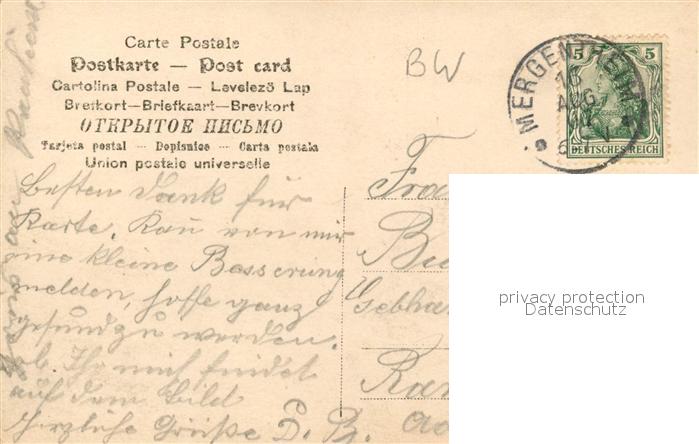 Carte Postale
Postkarte — Post card
Cartolina Postale — Levelező Lap
Brefkort—Briefkaart—Brevkort
ОТКРЫТОЕ ПИСЬМО
Tarjeta postal — Dopisnice — Carta postala
Union postale universelle
BW
MERGENTHEIM
16
AUG
5 5
DEUTSCHES REICH
Besten Dank für
Karte. Kan von mir
eine kleine Besserung
melden, hoffe ganz
gesund zu werden.
ob Ihr mich findet
auf dem Bild
Herzliche Grüße D. B.
Gebha
privacy protection
Datenschutz